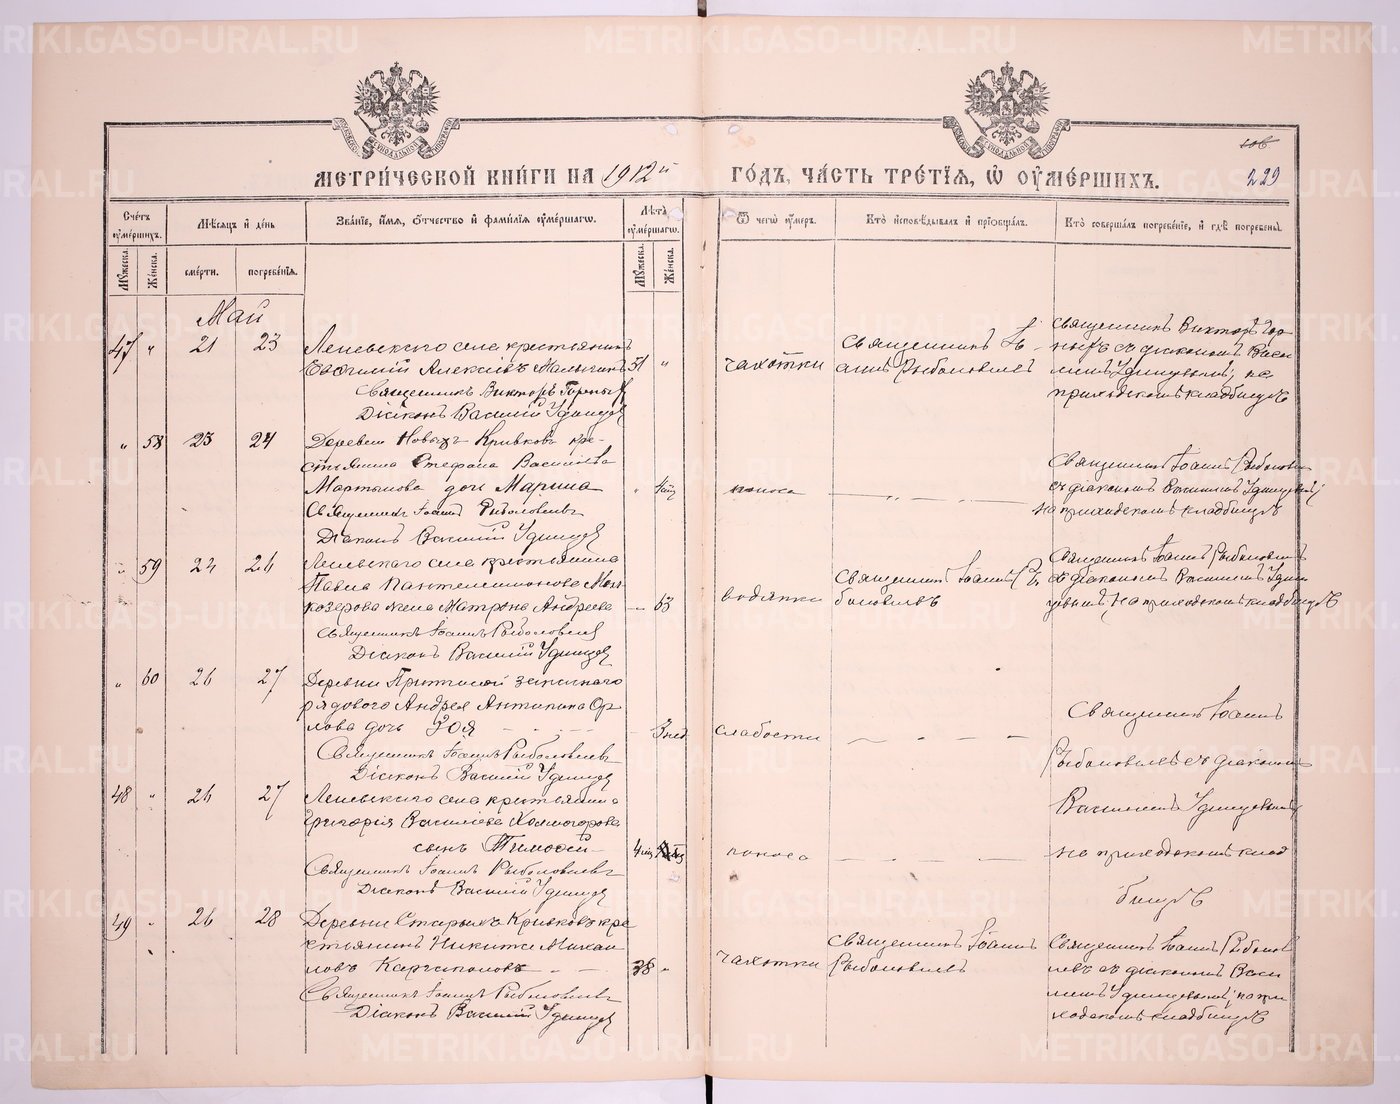 МЕТРИ́ЧЕСКОЙ КНИ́ГИ НА 1912й ГО́ДЪ, ЧА́СТЬ ТРЕ́ТІѦ, Ѡ ОУМЕ́РШИХЪ.
229
Сче́тъ оуме́ршихъ.
Мѣсѧцъ и де́нь
Зва́нїе, и́мѧ, о́тчество и фами́лїѧ оуме́ршагѡ.
Лѣта̀ оуме́ршагѡ.
Ѿ чегѡ̀ оу́меръ.
Кто̀ исповѣ́дывалъ и прїобща́лъ.
Кто̀ соверша́лъ погребе́нїе, и гдѣ̀ погребены̀.
Мꙋ́жеска.
Же́нска.
сме́рти.
погребе́нїѧ.
Мꙋ́жеска.
Же́нска.
Май
47 " 21 23
Леневскаго села крестьянинъ
Евѳимій Алексѣевъ Малыгинъ 51 "
Священникъ Викторъ Горныхъ
Діаконъ Василій Удинцев
чахотки
Священникъ Іо-
аннъ Рыболовлевъ
Священникъ Викторъ Гор-
ныхъ съ діакономъ Васи-
ліемъ Удинцевымъ; на
приходскомъ кладбищѣ
" 58 23 24
Деревни Новыхъ Кривковъ кре-
стьянина Стефана Васильева
Мартынова дочь Марина " 4 мѣс
Священникъ Іоаннъ Рыболовлевъ
Діаконъ Василій Удинцев
поноса
Священникъ Іоаннъ Рыболовлевъ
съ діакономъ Василіемъ Удинцевымъ;
на приходскомъ кладбищѣ
" 59 24 26
Леневскаго села крестьянина
Павла Пантелеимонова
жена Матрона Андреева — 63
Священникъ Іоаннъ Рыболовлев
Діаконъ Василій Удинцев
водянки
Священникъ Іоаннъ Ры-
боловлевъ
Священникъ Іоаннъ Рыболовлевъ
съ діакономъ Василіемъ Удин-
цевымъ, на приходскомъ кладбищѣ
" 60 26 27
Деревни запаснаго
рядового Андрея Антипина Ор-
лова дочь Зоя — 3 нед
Священникъ Іоаннъ Рыболовлевъ
Діаконъ Василій Удинцев
слабости
Священникъ Іоаннъ
Рыболовлевъ съ діакономъ
Василіемъ Удинцевымъ
на приходскомъ клад
бищѣ
48 " 26 27
Леневскаго села крестьянина
Григорія Васильева Холмогорова
сынъ Тимоѳей 4 мѣс
Священникъ Іоаннъ Рыболовлевъ
Діаконъ Василій Удинцев
поноса
49 " 26 28
Деревни Старыхъ Кривковъ кре
стьянинъ Никита Михаи
ловъ Каргаполовъ 38 "
Священникъ Іоаннъ Рыболовлевъ
Діаконъ Василій Удинцев
чахотки
Священникъ Іоаннъ
Рыболовлевъ
Священникъ Іоаннъ Рыболов
левъ съ діакономъ Васи
ліемъ Удинцевымъ; на при
ходскомъ кладбищѣ
METRIKI.GASO-URAL.RU